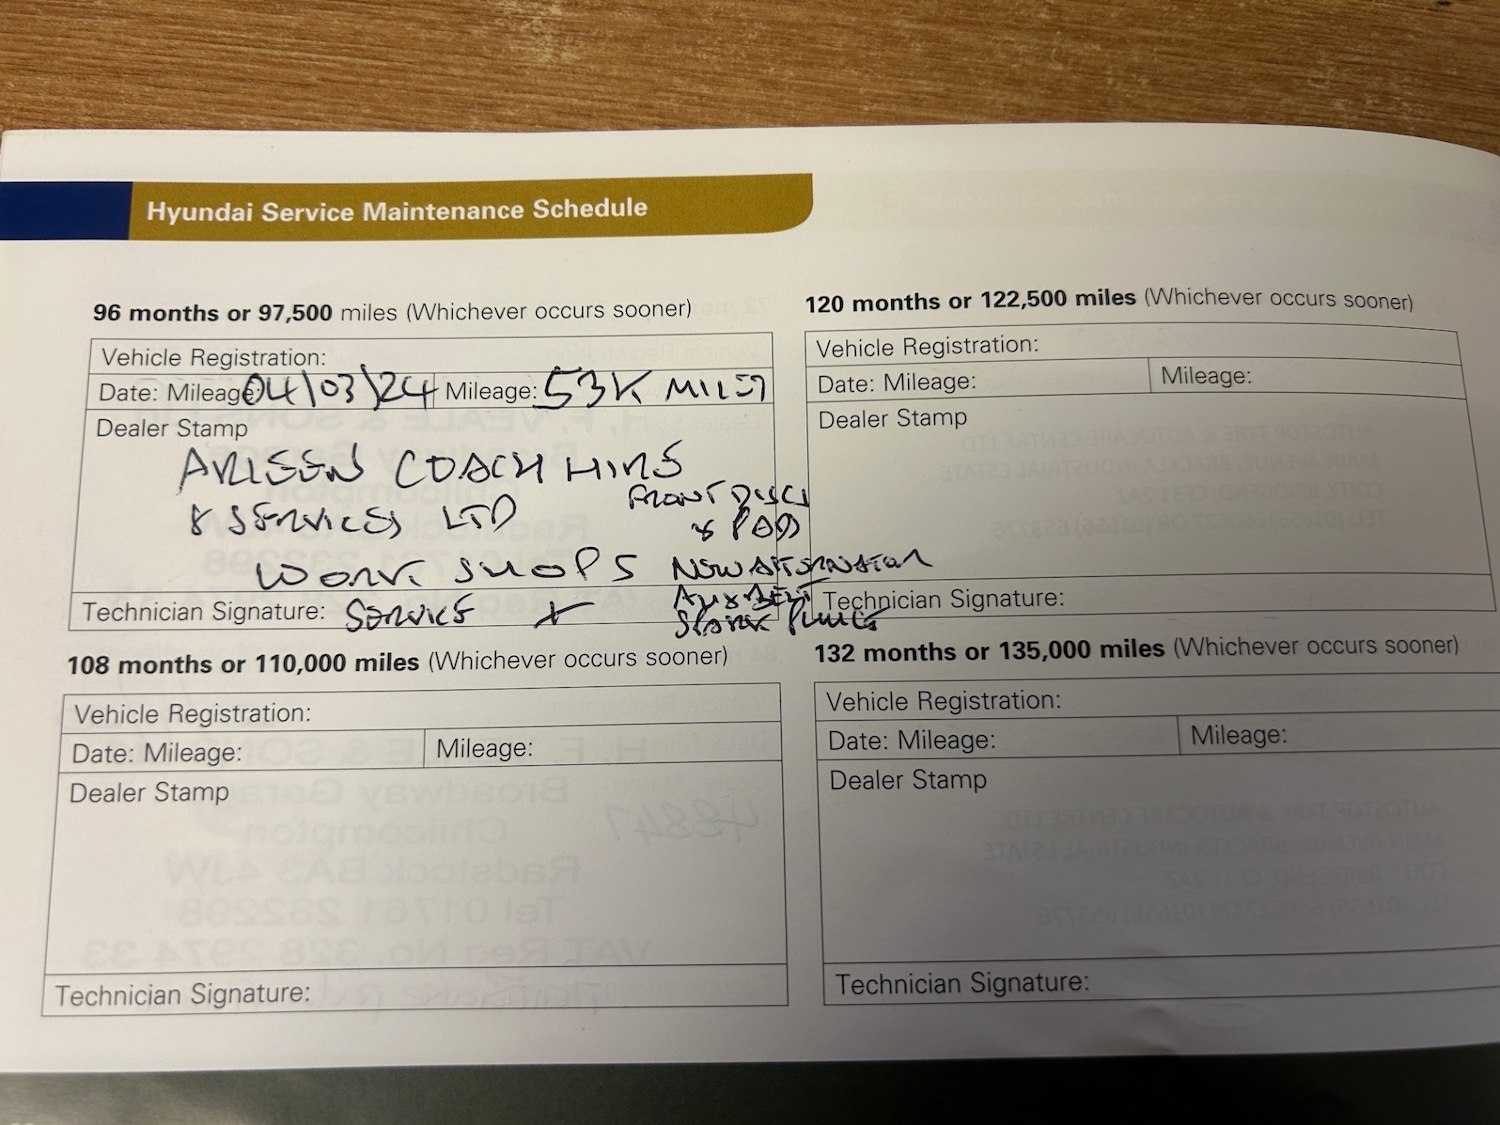 Hyundai Service Maintenance Schedule
96 months or 97,500 miles (Whichever occurs sooner)
Vehicle Registration:
Date: Mileage 04/03/24 Mileage: 53K MILES
Dealer Stamp
COACH HIRE
& SERVICES LTD
WORK SHOPS
FRONT DISCS
& PADS
NEW ALTERNATOR
AUX BELT
SPARK PLUGS
Technician Signature: SERVICE +
108 months or 110,000 miles (Whichever occurs sooner)
Vehicle Registration:
Date: Mileage: Mileage:
Dealer Stamp
Technician Signature:
120 months or 122,500 miles (Whichever occurs sooner)
Vehicle Registration:
Date: Mileage: Mileage:
Dealer Stamp
Technician Signature:
132 months or 135,000 miles (Whichever occurs sooner)
Vehicle Registration:
Date: Mileage: Mileage:
Dealer Stamp
Technician Signature: